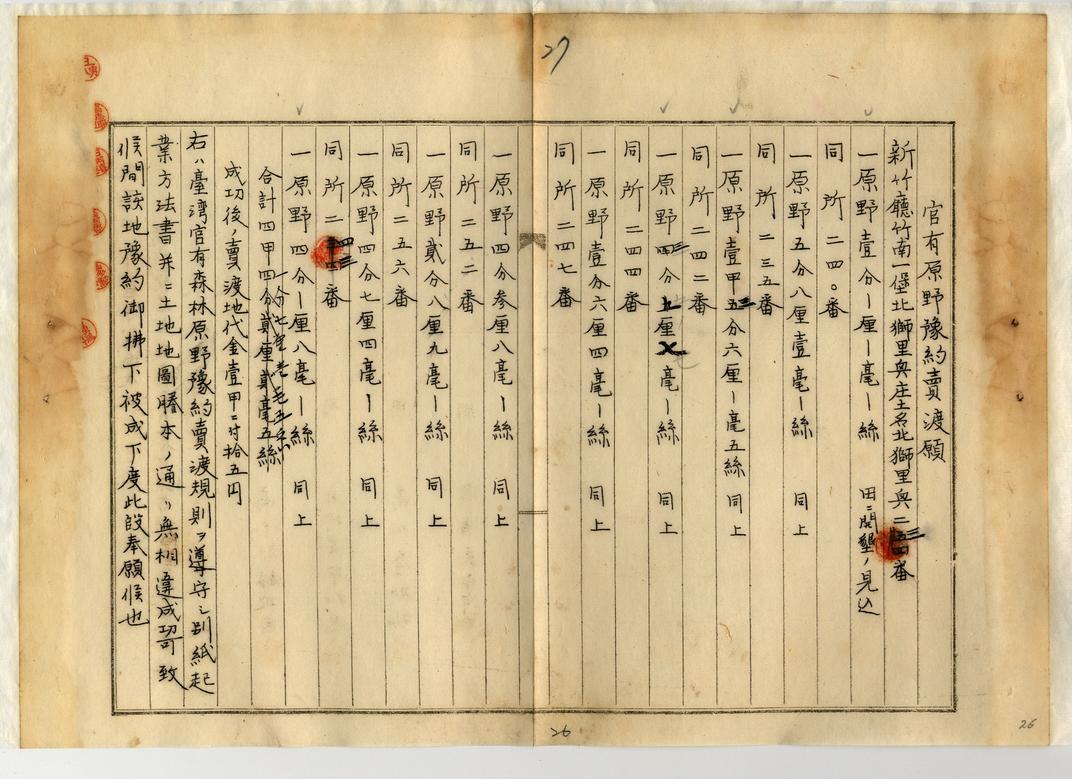 27
官有原野豫約賣渡願
新竹廳竹南一堡北獅里興庄土名北獅里興二三番
一原野壹分一厘一毫一絲 田ニ開墾ノ見込
同所二四〇番
一原野五分八厘壹毫一絲 同上
同所二三五番
一原野壹甲三分六厘一毫五絲 同上
同所二四二番
一原野三分七厘一毫一絲 同上
同所二四四番
一原野壹分六厘四毫一絲 同上
同所二四七番
一原野四分参厘八毫一絲 同上
同所二五二番
一原野貳分八厘九毫一絲 同上
同所二五六番
一原野四分七厘四毫一絲 同上
同所二四三番
一原野四分一厘八毫一絲 同上
合計四甲一分七厘
成功後ノ賣渡地代金壹甲ニ付拾五円
右ハ臺湾官有森林原野豫約賣渡規則ヲ遵守シ別紙起
業方法書并ニ土地地圖謄本ノ通リ無相違成功可致
候間該地豫約御拂下被成下度此段奉願候也
26
26